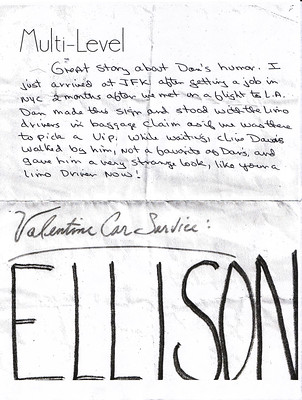 Multi-Level
Great story about Dan's humor. I
just arrived at JFK after getting a job in
NYC 2 months after we met on a flight to L.A.
Dan made this sign and stood with the Limo
drivers in baggage claim as if he was there
to pick a Vip. While waiting, Clive Davis
walked by him, not a favorite of Dan's, and
gave him a very strange look, like your a
Limo Driver Now!
Valentine Car Service:
ELLISON